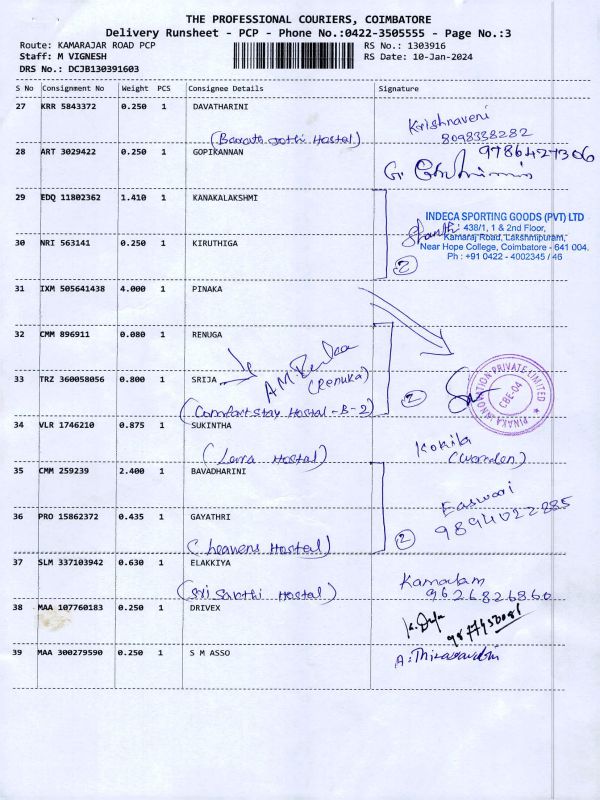 THE PROFESSIONAL COURIERS, COIMBATORE
Delivery Runsheet - PCP - Phone No.:0422-3505555 - Page No.:3
Route: KAMARAJAR ROAD PCP RS No.: 1303916
Staff: M VIGNESH RS Date: 10-Jan-2024
DRS No.: DCJB130391603
S No Consignment No Weight PCS Consignee Details Signature
27 KRR 5843372 0.250 1 DAVATHARINI Krishnaveni
(Barath Jothi Hostel) 8098338282
28 ART 3029422 0.250 1 GOPIKANNAN 9786427306
G.
29 EDQ 11802362 1.410 1 KANAKALAKSHMI
INDECA SPORTING GOODS (PVT) LTD
438/1, 1 & 2nd Floor,
Shanthi Kamaraj Road, Lakshmipuram,
30 NRI 563141 0.250 1 KIRUTHIGA Near Hope College, Coimbatore - 641 004.
Ph : +91 0422 - 4002345 / 46
2
31 IXM 505641438 4.000 1 PINAKA
32 CMM 896911 0.080 1 RENUGA
33 TRZ 360058056 0.800 1 SRIJA (Renuka)
PINAKA INNOVATION PRIVATE LIMITED
CBE-04
2
(Comfort stay Hostal-B-2)
34 VLR 1746210 0.875 1 SUKINTHA Kokila
(Leera Hostal) (Warden)
35 CMM 259239 2.400 1 BAVADHARINI
Easwari
9894022885
36 PRO 15862372 0.435 1 GAYATHRI
(heavens Hostel) 2
37 SLM 337103942 0.630 1 ELAKKIYA Kamalam
(Sri Sakthi Hostal) 9626826860
38 MAA 107760183 0.250 1 DRIVEX
39 MAA 300279590 0.250 1 S M ASSO